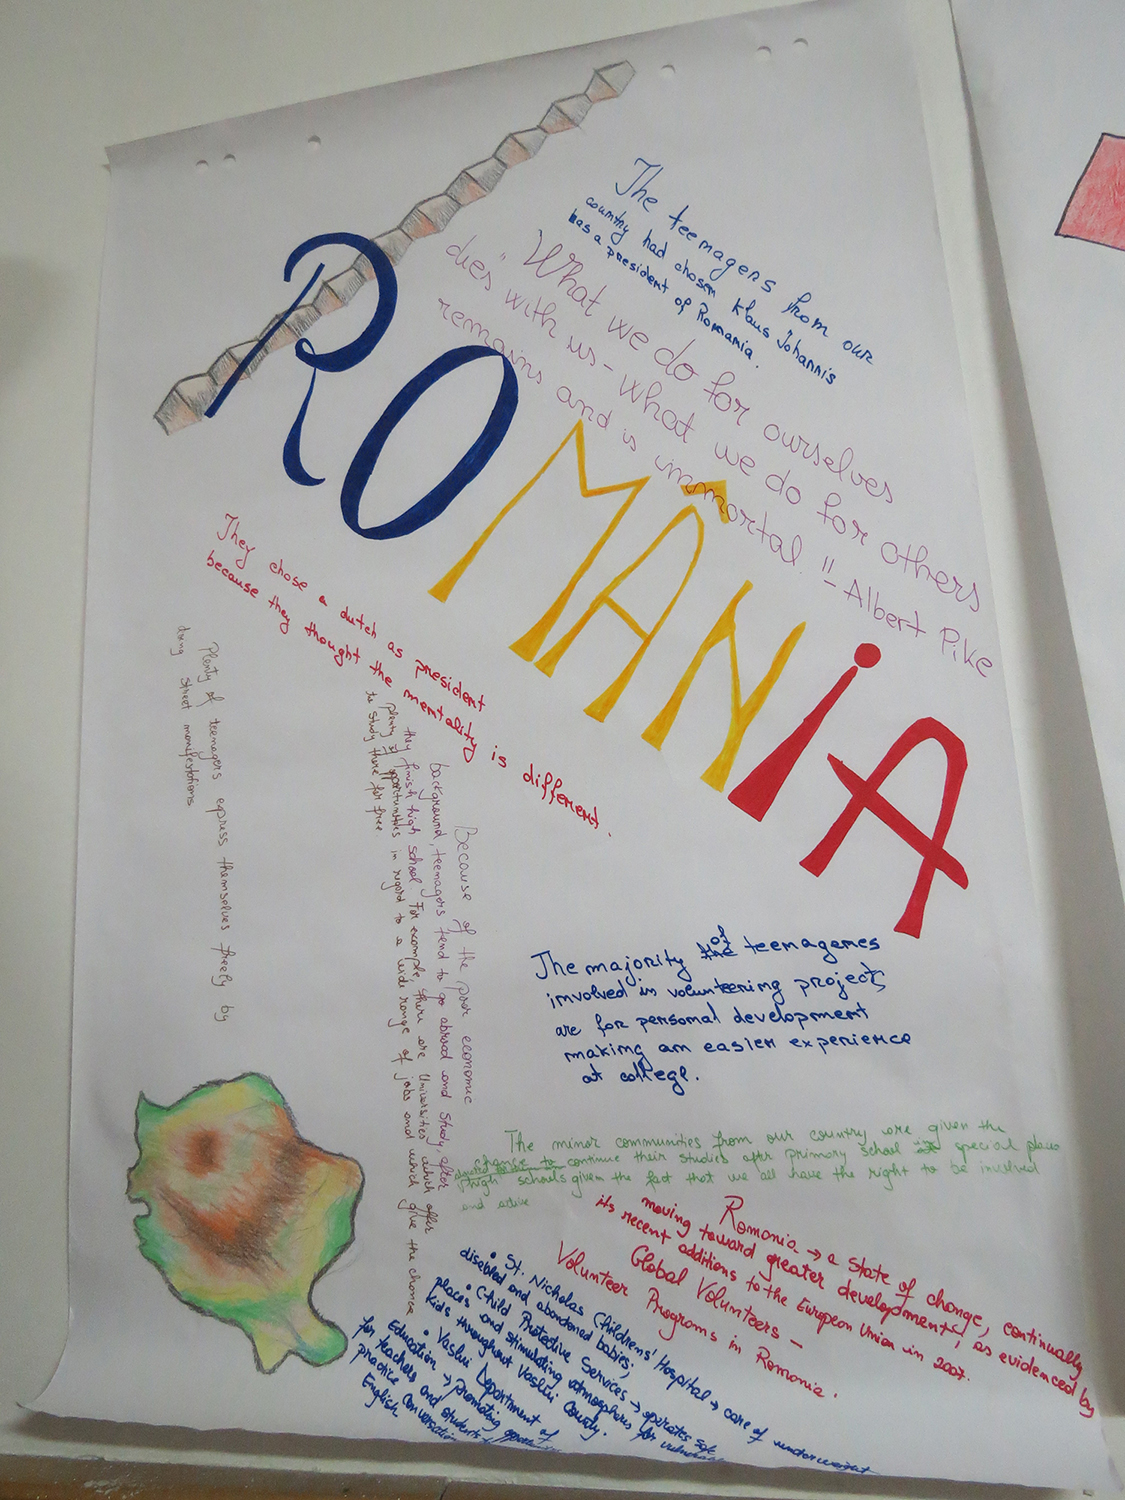 The teemagers from our
country had chosen Klaus Johannis
has a president of Romania.
"What we do for ourselves
dies with us - what we do for others
remains and is immortal." - Albert Pike
ROMÂNIA
They chose a dutch as president
because they thought the mentality is different.
Plenty of teenagers express themselves freely by
doing street manifestations
Because of the poor economic
background, teenagers tend to go abroad and study, after
they finish high school. For example, there are Universities which offer
plenty of opportunities in regard to a wide range of jobs and which give the chance
to study there for free
The majority of teemagemes
involved in volunteering projects
are for personal development
making am easier experience
at college.
The minor communities from our country are given the
chance to continue their studies after primary school special places
high schools given the fact that we all have the right to be involved
and active
Romania → a state of change, continually
moving toward greater developments, as evidenced by
its recent additions to the European Union in 2007.
Global Volunteers -
Volunteer Programs in Romania.
• St. Nicholas Childrens' Hospital → care of underweight
disebled and abandoned babies;
• Child Protective Services → operates safe
places and stimulating atmospheres for vulnerable
kids throughout Vaslui County.
• Vaslui Department of
Education → promoting
for teachers and students
practice conversation
English